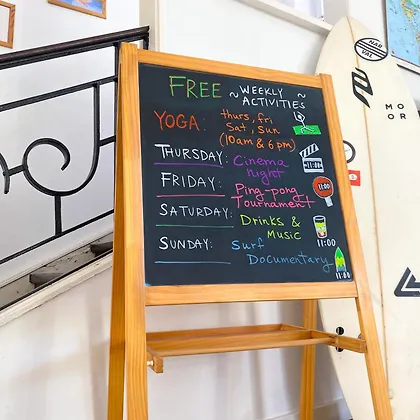 FREE ~ WEEKLY ~
ACTIVITIES
YOGA: thurs, fri
Sat, Sun
(10am & 6 pm)
THURSDAY: Cinema
night
11:00
FRIDAY: Ping-pong
Tournament
11:00
SATURDAY: Drinks &
Music
11:00
SUNDAY: Surf
Documentary
11:00
MOOR